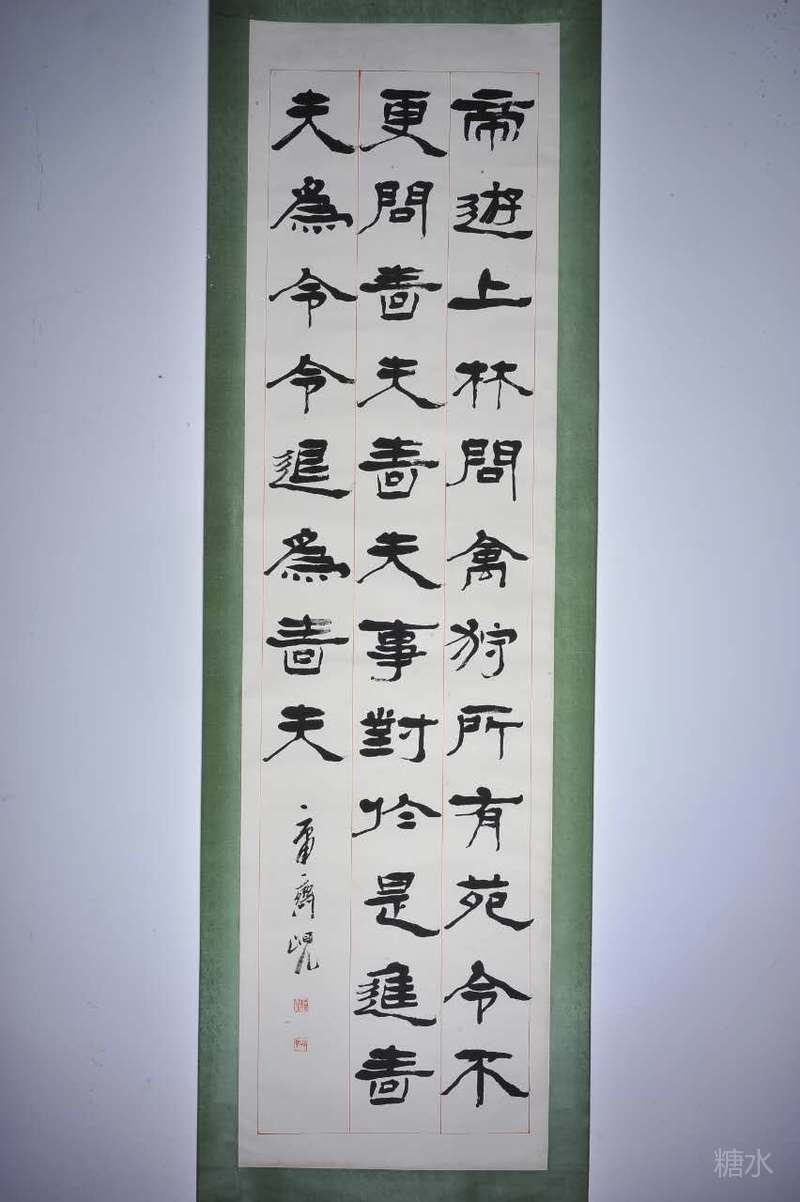 帝遊上林問禽狩所有苑令不
更問嗇夫嗇夫事對於是進嗇
夫爲令令退爲嗇夫
糖水